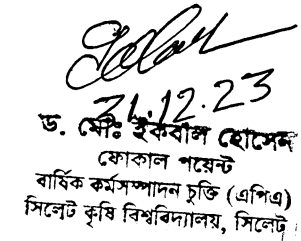 21.12.23
ড. মোঃ ইকবাল হোসেন
ফোকাল পয়েন্ট
বার্ষিক কর্মসম্পাদন চুক্তি (এপিএ)
সিলেট কৃষি বিশ্ববিদ্যালয়, সিলেট